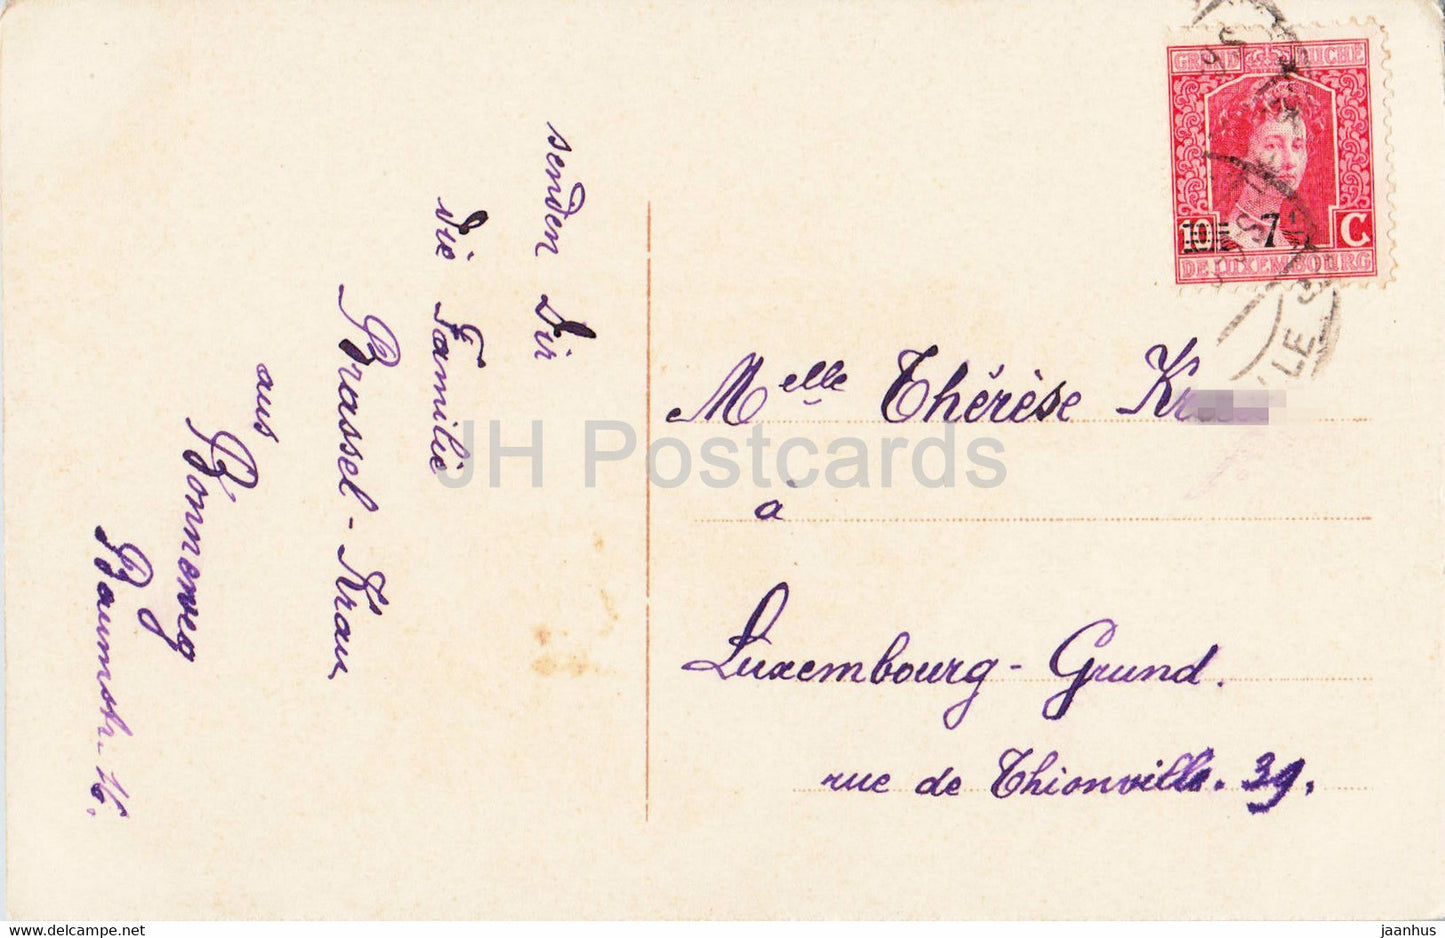 senden Dir
die Familie
Brassel-Krau
aus
Bonneweg
Baumstr. 16.
GRAND DUCHÉ
10 7½ C
DE LUXEMBOURG
LE
Melle Thérèse Kr
à
Luxembourg-Grund.
rue de Thionville. 39.
JH Postcards
www.hippostcard.com
jaanhus